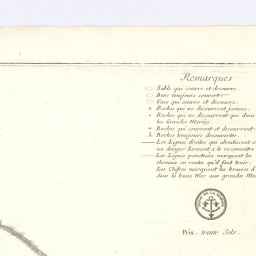 Remarques
Sable qui couvre et decouvre.
Banc toujours couvert
Vase qui couvre et decouvre.
Roches qui ne decouvrent jamais.
Roches qui ne decouvrent que dans
les Grandes Marées.
Roches qui couvrent et decouvrent
Roches toujours decouvertes.
Les Lignes droites qui aboutissent
au danger servent à le reconnoitre
Les Lignes ponctuées marquent les
chemins ou routes qu'il faut tenir.
Les Chifres marquent les brasses d'
Eau la basse Mer aux grandes
Prix, trente Sols.